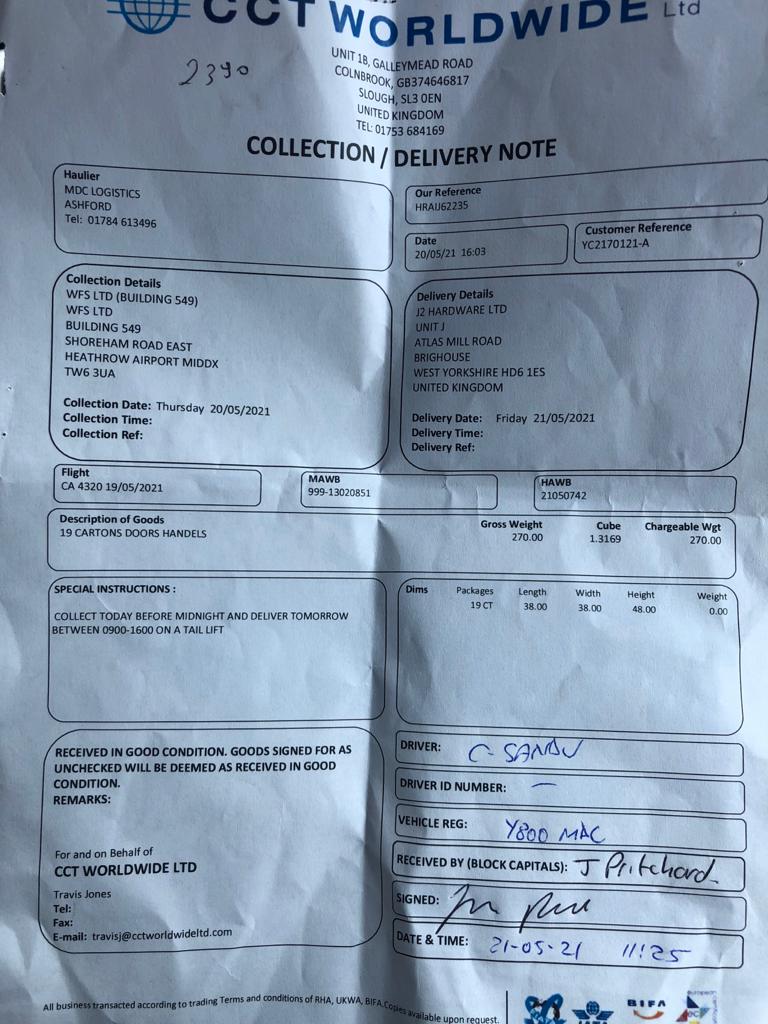 CCT WORLDWIDE Ltd
2390
UNIT 1B, GALLEYMEAD ROAD
COLNBROOK, GB374646817
SLOUGH, SL3 0EN
UNITED KINGDOM
TEL: 01753 684169
COLLECTION / DELIVERY NOTE
Haulier
MDC LOGISTICS
ASHFORD
Tel: 01784 613496
Our Reference
HRAIJ62235
Date
20/05/21 16:03
Customer Reference
YC2170121-A
Collection Details
WFS LTD (BUILDING 549)
WFS LTD
BUILDING 549
SHOREHAM ROAD EAST
HEATHROW AIRPORT MIDDX
TW6 3UA
Collection Date: Thursday 20/05/2021
Collection Time:
Collection Ref:
Delivery Details
J2 HARDWARE LTD
UNIT J
ATLAS MILL ROAD
BRIGHOUSE
WEST YORKSHIRE HD6 1ES
UNITED KINGDOM
Delivery Date: Friday 21/05/2021
Delivery Time:
Delivery Ref:
Flight
CA 4320 19/05/2021
MAWB
999-13020851
HAWB
21050742
Description of Goods Gross Weight Cube Chargeable Wgt
19 CARTONS DOORS HANDELS 270.00 1.3169 270.00
SPECIAL INSTRUCTIONS :
COLLECT TODAY BEFORE MIDNIGHT AND DELIVER TOMORROW
BETWEEN 0900-1600 ON A TAIL LIFT
Dims Packages Length Width Height Weight
19 CT 38.00 38.00 48.00 0.00
RECEIVED IN GOOD CONDITION. GOODS SIGNED FOR AS
UNCHECKED WILL BE DEEMED AS RECEIVED IN GOOD
CONDITION.
REMARKS:
For and on Behalf of
CCT WORLDWIDE LTD
Travis Jones
Tel:
Fax:
E-mail: travisj@cctworldwideltd.com
DRIVER: C SANDU
DRIVER ID NUMBER: —
VEHICLE REG: Y800 MAC
RECEIVED BY (BLOCK CAPITALS): J Pritchard
SIGNED:
DATE & TIME: 21-05-21 11:25
All business transacted according to trading Terms and conditions of RHA, UKWA, BIFA.Copies available upon request.
BIFA
european